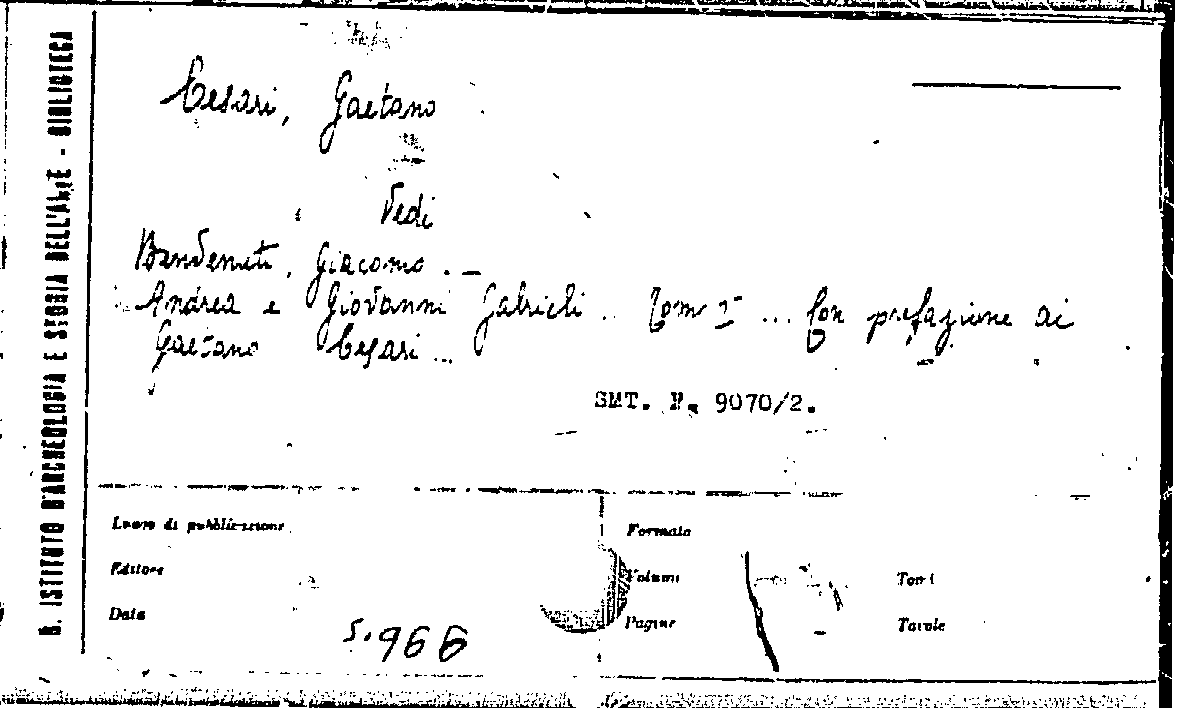 R. ISTITUTO D'ARCHEOLOGIA E STORIA DELL'ARTE - BIBLIOTECA
Cesari, Gaetano
Vedi
Benvenuti, Giacomo . —
Andrea e Giovanni Gabrieli .. Tom 1° ... Con prefazione di
Gaetano Cesari ...
SMT. N. 9070/2.
Luogo di pubblicazione
Editore
Data
Formato
Volumi
Pagine
Tomi
Tavole
S. 966